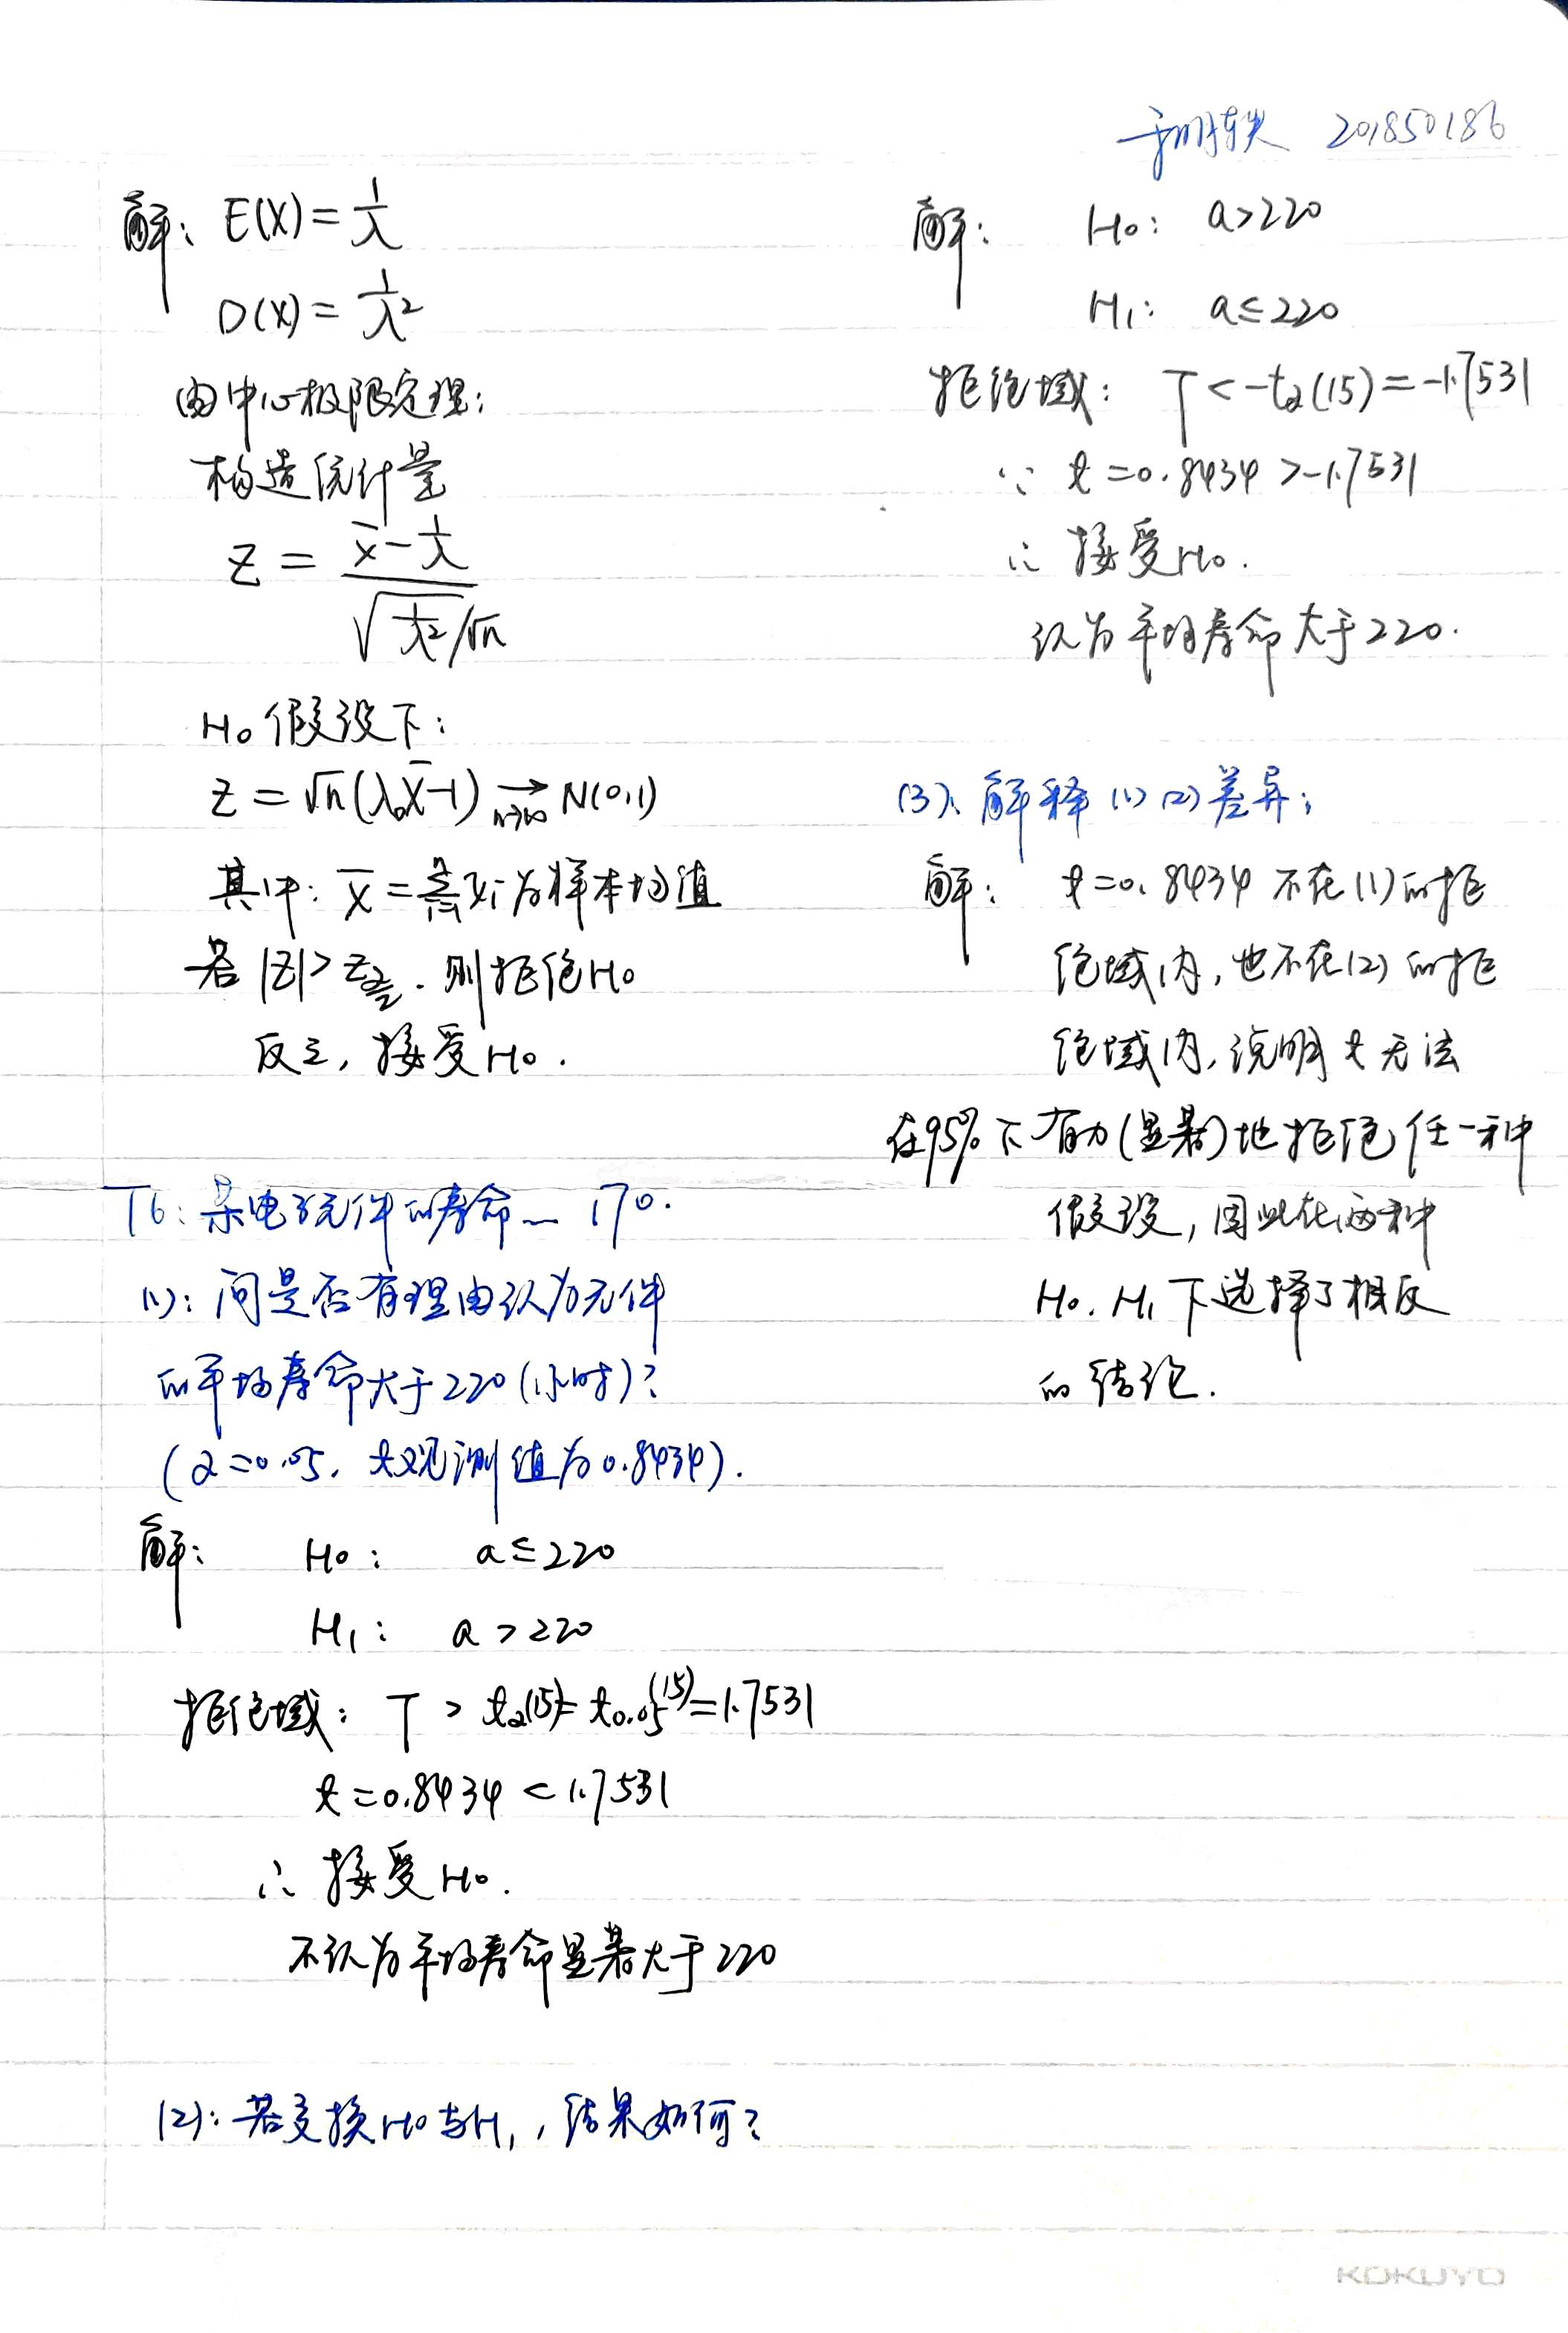 201850186
解: E(X) = 1/λ
D(X) = 1/λ²
由中心极限定理:
构造统计量
Z = (x̄ - 1/λ) / (√(1/λ²)/√n)
H₀ 假设下:
Z = √n(λ₀X̄-1) →(n→∞) N(0,1)
其中: X̄ = Σᵢ₌₁ⁿ Xi 为样本均值
若 |Z| > z_{α/2}. 则拒绝H₀
反之, 接受H₀.
T6: 某电子元件的寿命 … 170.
(1): 问是否有理由认为元件
的平均寿命大于220 (小时)?
(α=0.05, t观测值为0.8434).
解: H₀: a≤220
H₁: a>220
拒绝域: T > tα(15)= t0.05(15)=1.7531
t=0.8434 < 1.7531
∴ 接受H₀.
不认为平均寿命显著大于220
(2): 若交换H₀与H₁, 结果如何?
解: H₀: a>220
H₁: a≤220
拒绝域: T < -tα(15) = -1.7531
∵ t=0.8434 > -1.7531
∴ 接受H₀.
认为平均寿命大于220.
(3). 解释(1)(2)差异;
解: t=0.8434 不在(1)的拒
绝域内, 也不在(2)的拒
绝域内, 说明t无法
在95%下有力(显著)地拒绝任一种
假设, 因此在两种
H₀. H₁下选择了相反
的结论.
KOKUYO